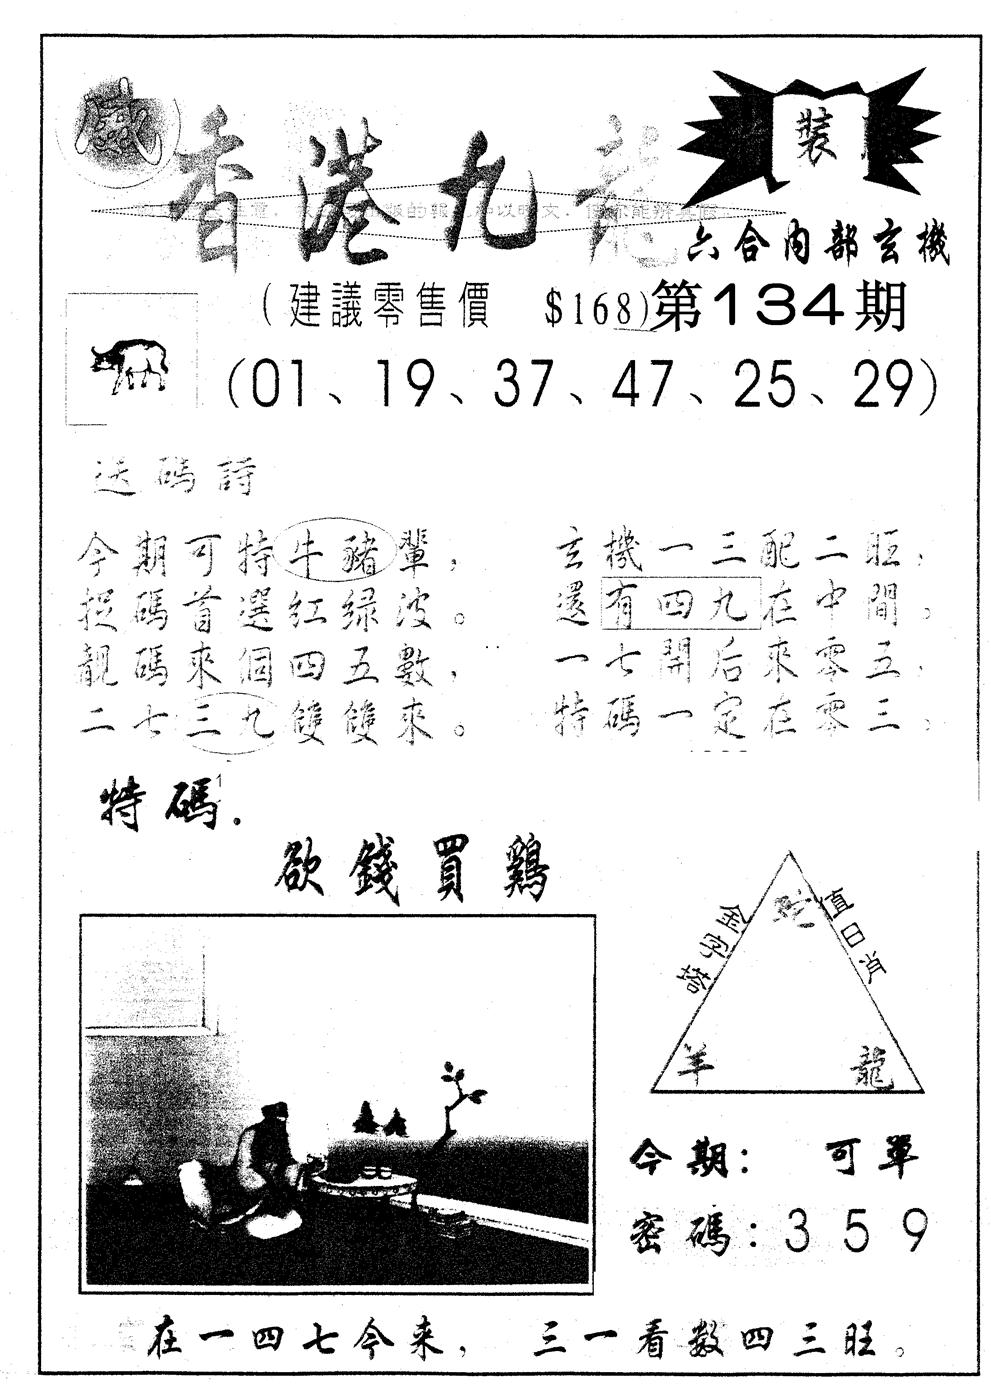 香港九龍
裝
六合內部玄機
(建議零售價 $168)第134期
(01、19、37、47、25、29)
送碼詩
今期可特牛豬輩，
捉碼首選紅绿波。
靚碼來個四五數，
二七三九雙雙來。
玄機一三配二旺，
還有四九在中間。
一七開后來零五，
特碼一定在零三。
特碼.
欲錢買鷄
金字塔
值日肖
蛇
羊 龍
今期： 可單
密碼：359
在一四七今来， 三一看数四三旺。